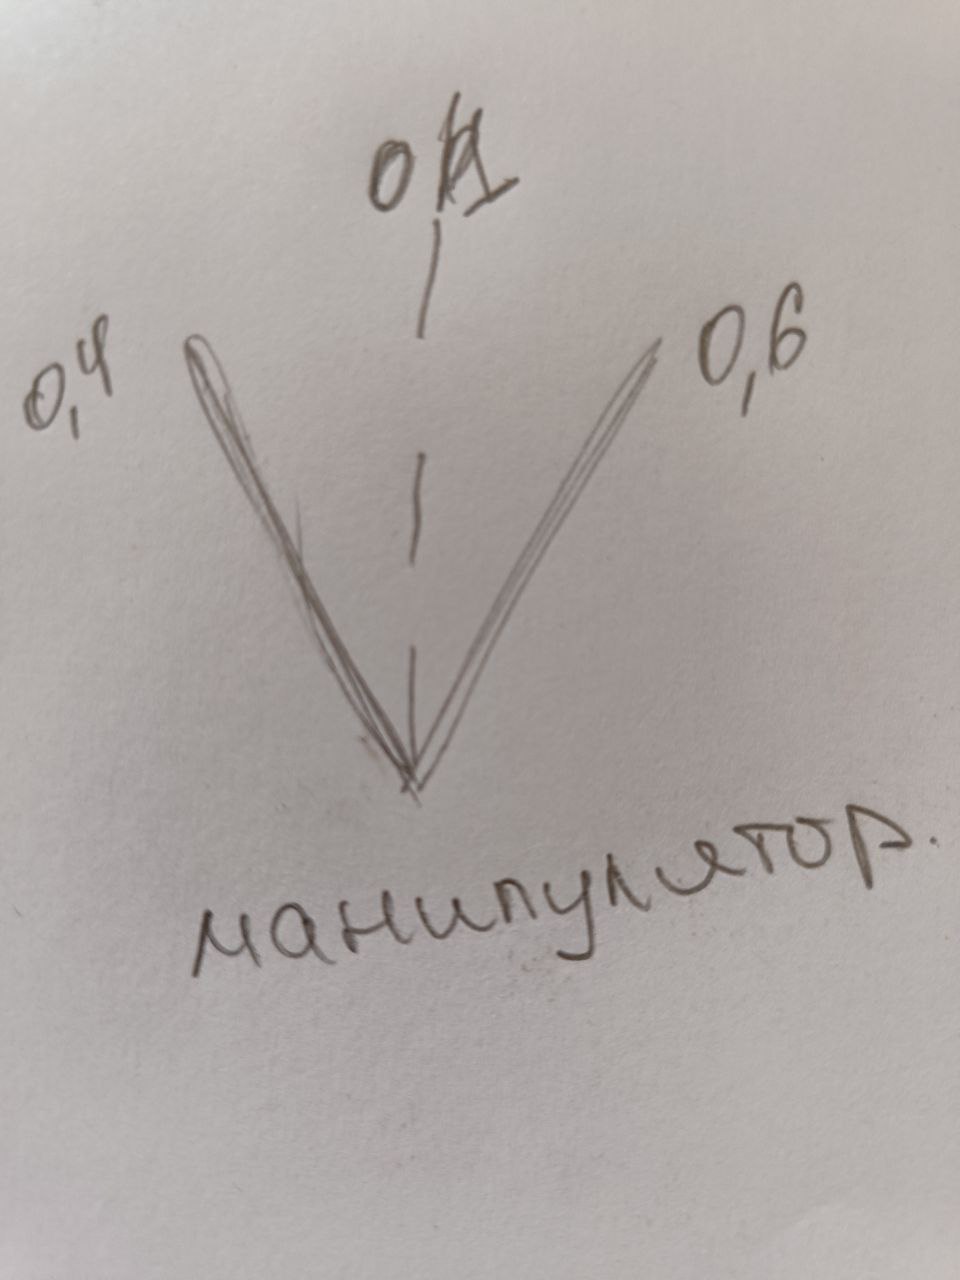 0
0,4
0,6
манипулятор.